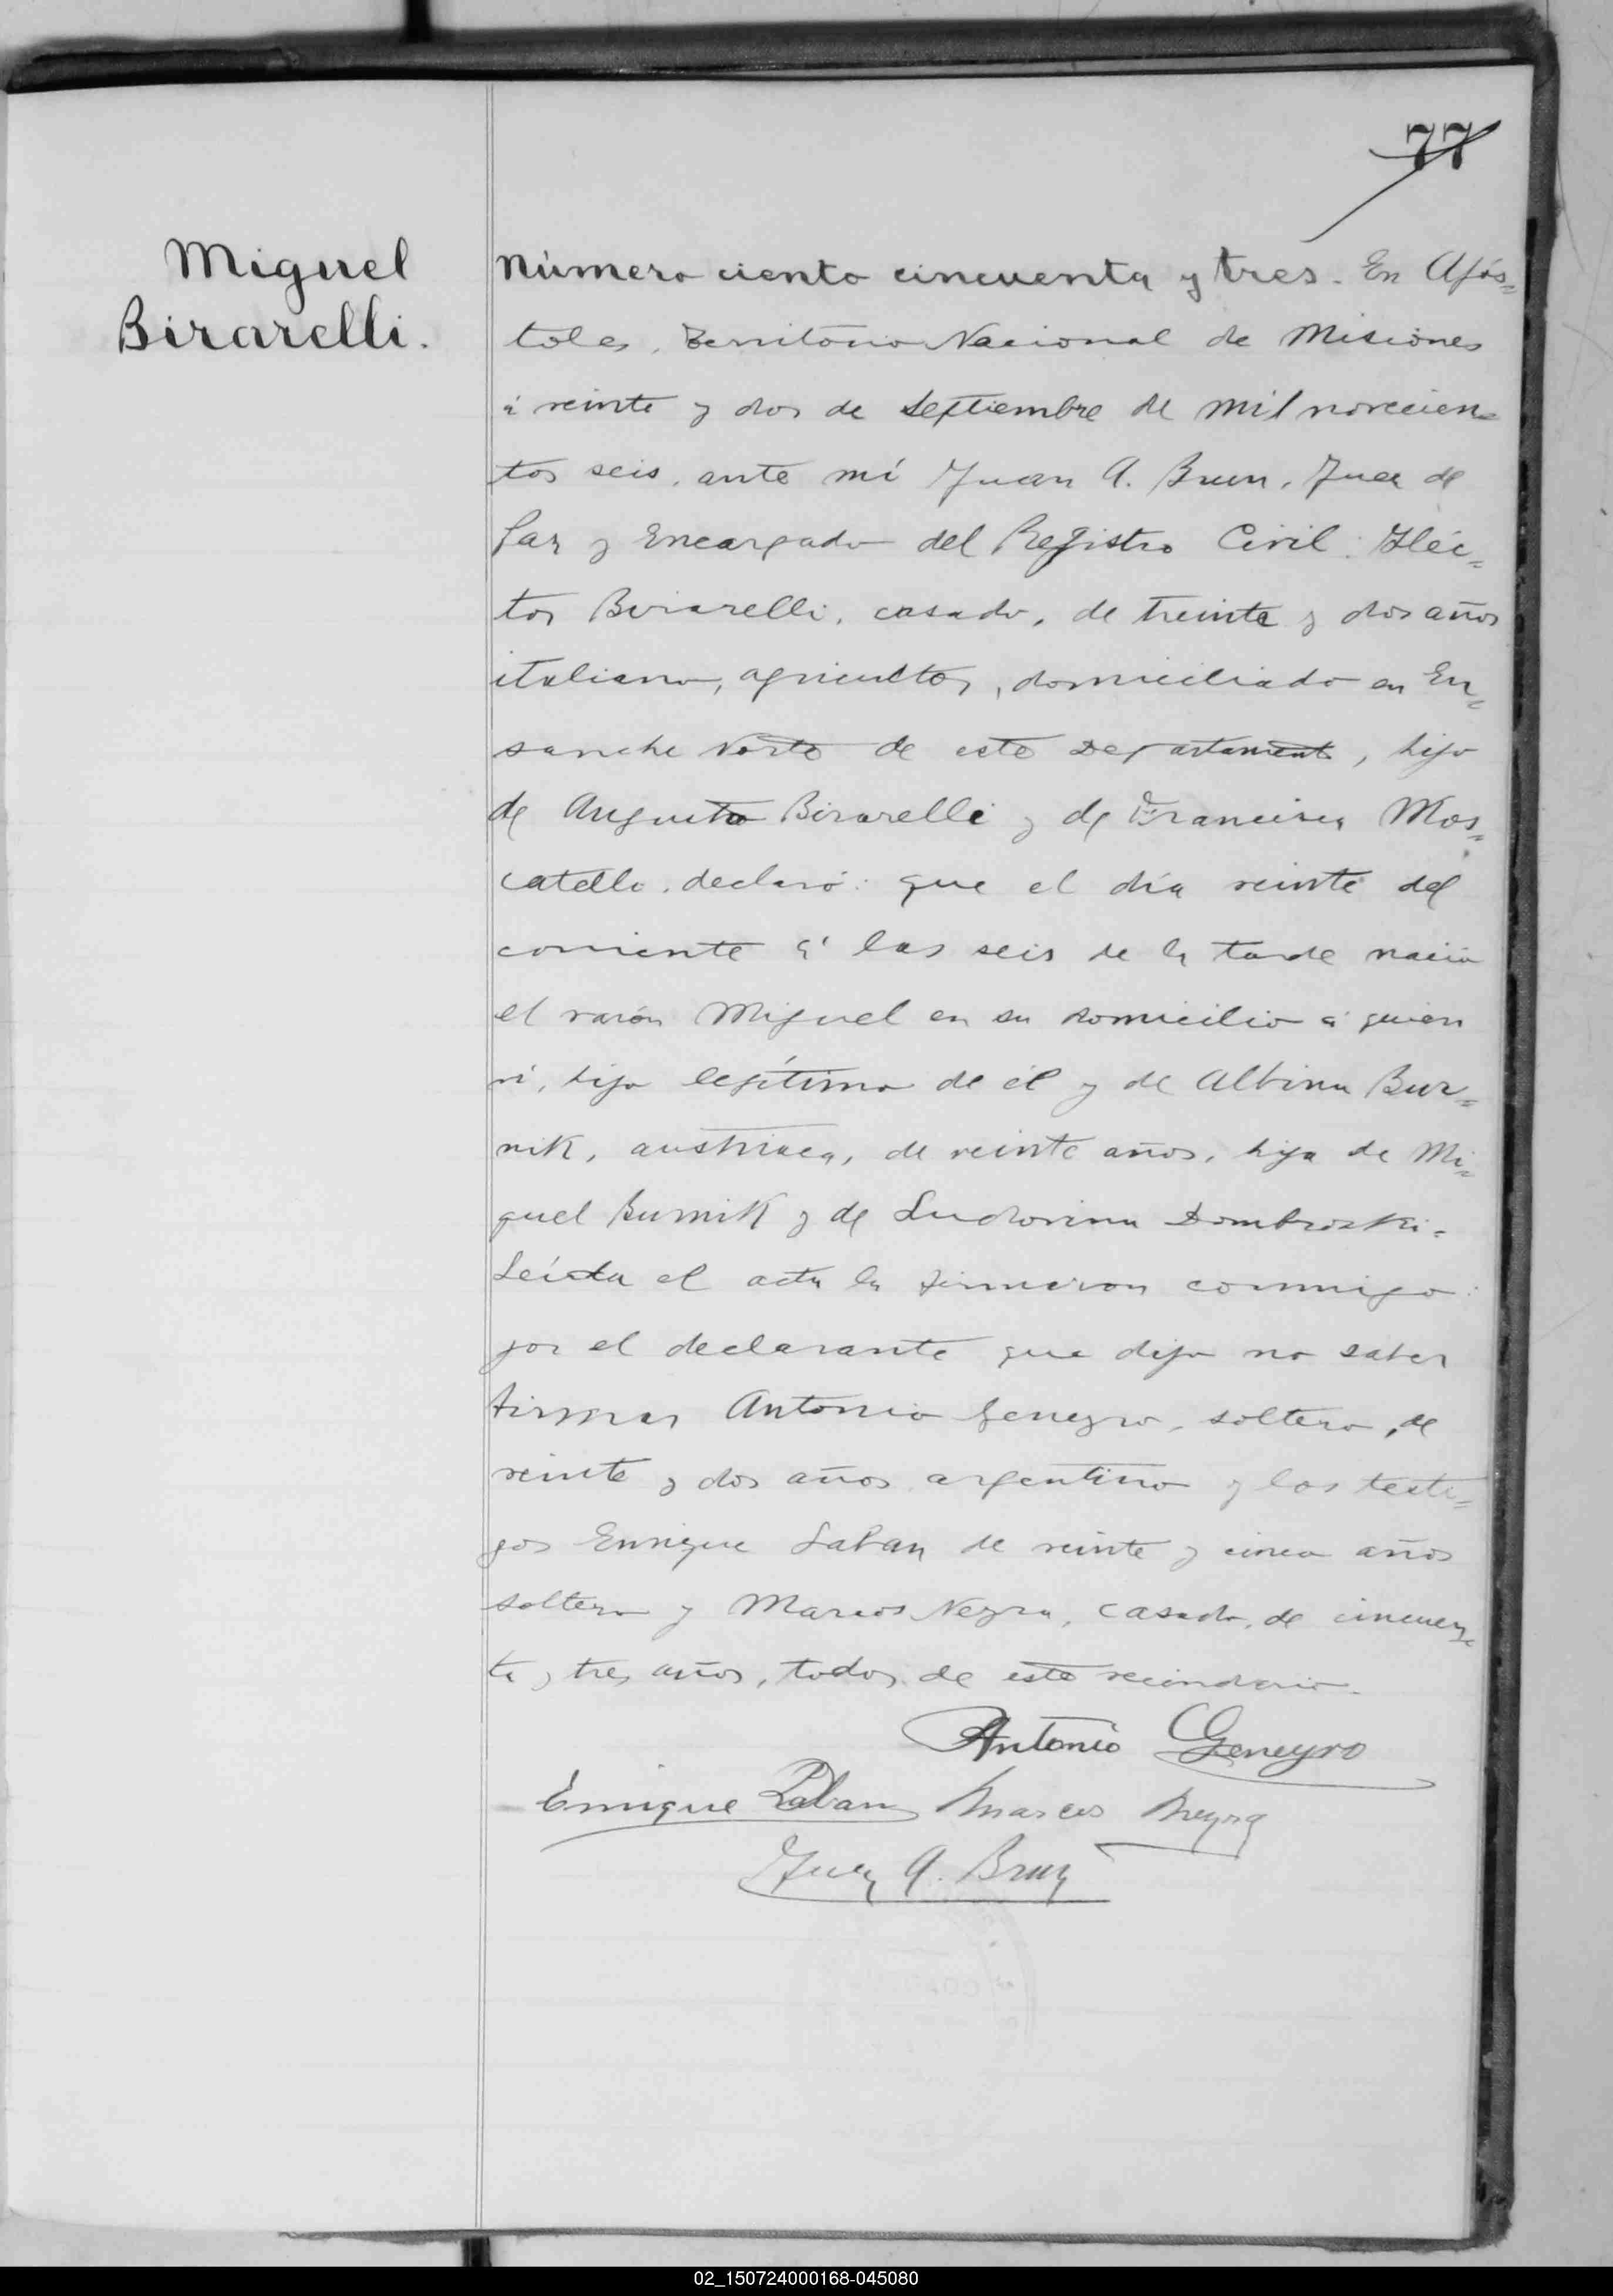 77
Miguel
Birarelli.
Número ciento cincuenta y tres. En Após=
toles, Territorio Nacional de Misiones
á veinte y dos de Septiembre de mil novecien=
tos seis, ante mí Juan A. Brun, Juez de
Paz y Encargado del Registro Civil: Héc=
tor Birarelli, casado, de treinta y dos años
italiano, agricultor, domiciliado en En=
sanche Norte de este Departamento, hijo
de Augusto Birarelli y de Francisca Mos=
catelli, declaró: que el día veinte del
corriente á las seis de la tarde nació
el varón Miguel en su domicilio á quien
ví, hijo legítimo de él y de Albina Bur=
nik, austriaca, de veinte años, hija de Mi=
guel Burnik y de Ludovina Dombroski.
Leída el acta la firmaron conmigo:
por el declarante que dijo no saber
firmar Antonio Geneyro, soltero, de
veinte y dos años argentino y los testi=
gos Enrique Laban de veinte y cinco años
soltero y Marcos Neyra, casado, de cincuen=
ta y tres años, todos de este vecindario.
Antonio Geneyro
Enrique Laban Marcos Neyra
Juan A. Brun
02_150724000168-045080